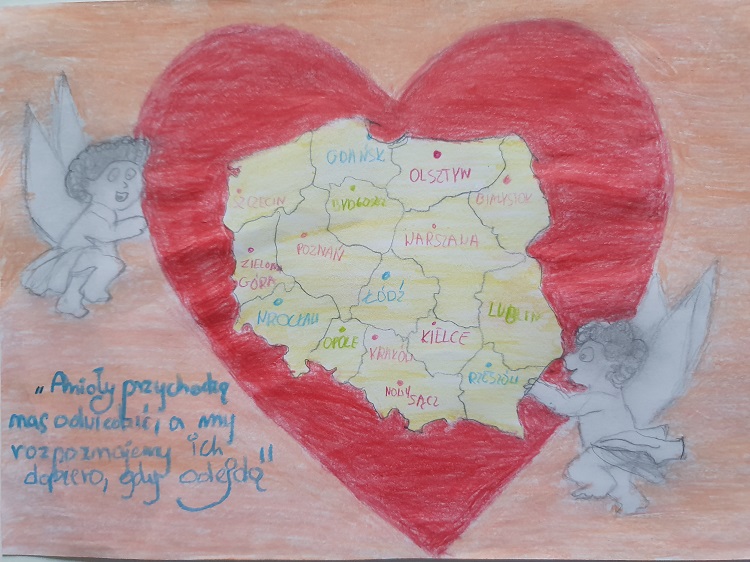 GDAŃSK
OLSZTYN
SZCZECIN
BYDGOSZCZ
BIAŁYSTOK
POZNAŃ
WARSZAWA
ZIELONA
GÓRA
ŁÓDŹ
WROCŁAW
LUBLIN
OPOLE
KIELCE
KRAKÓW
RZESZÓW
NOWY SĄCZ
„Anioły przychodzą
nas odwiedzić, a my
rozpoznajemy ich
dopiero, gdy odejdą"